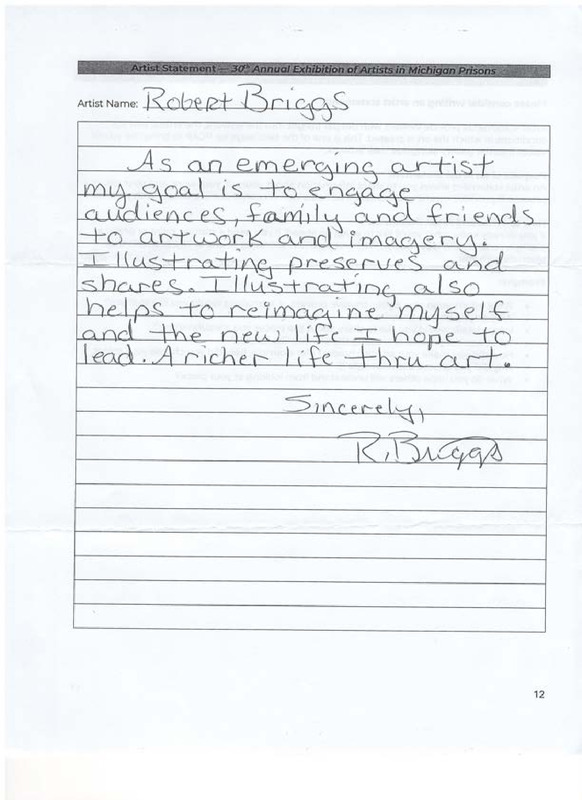 Artist Statement — 30th Annual Exhibition of Artists in Michigan Prisons
Artist Name: Robert Briggs
As an emerging artist
my goal is to engage
audiences, family and friends
to artwork and imagery.
Illustrating preserves and
shares. Illustrating also
helps to reimagine myself
and the new life I hope to
lead. A richer life thru art.
Sincerely,
R. Briggs
12